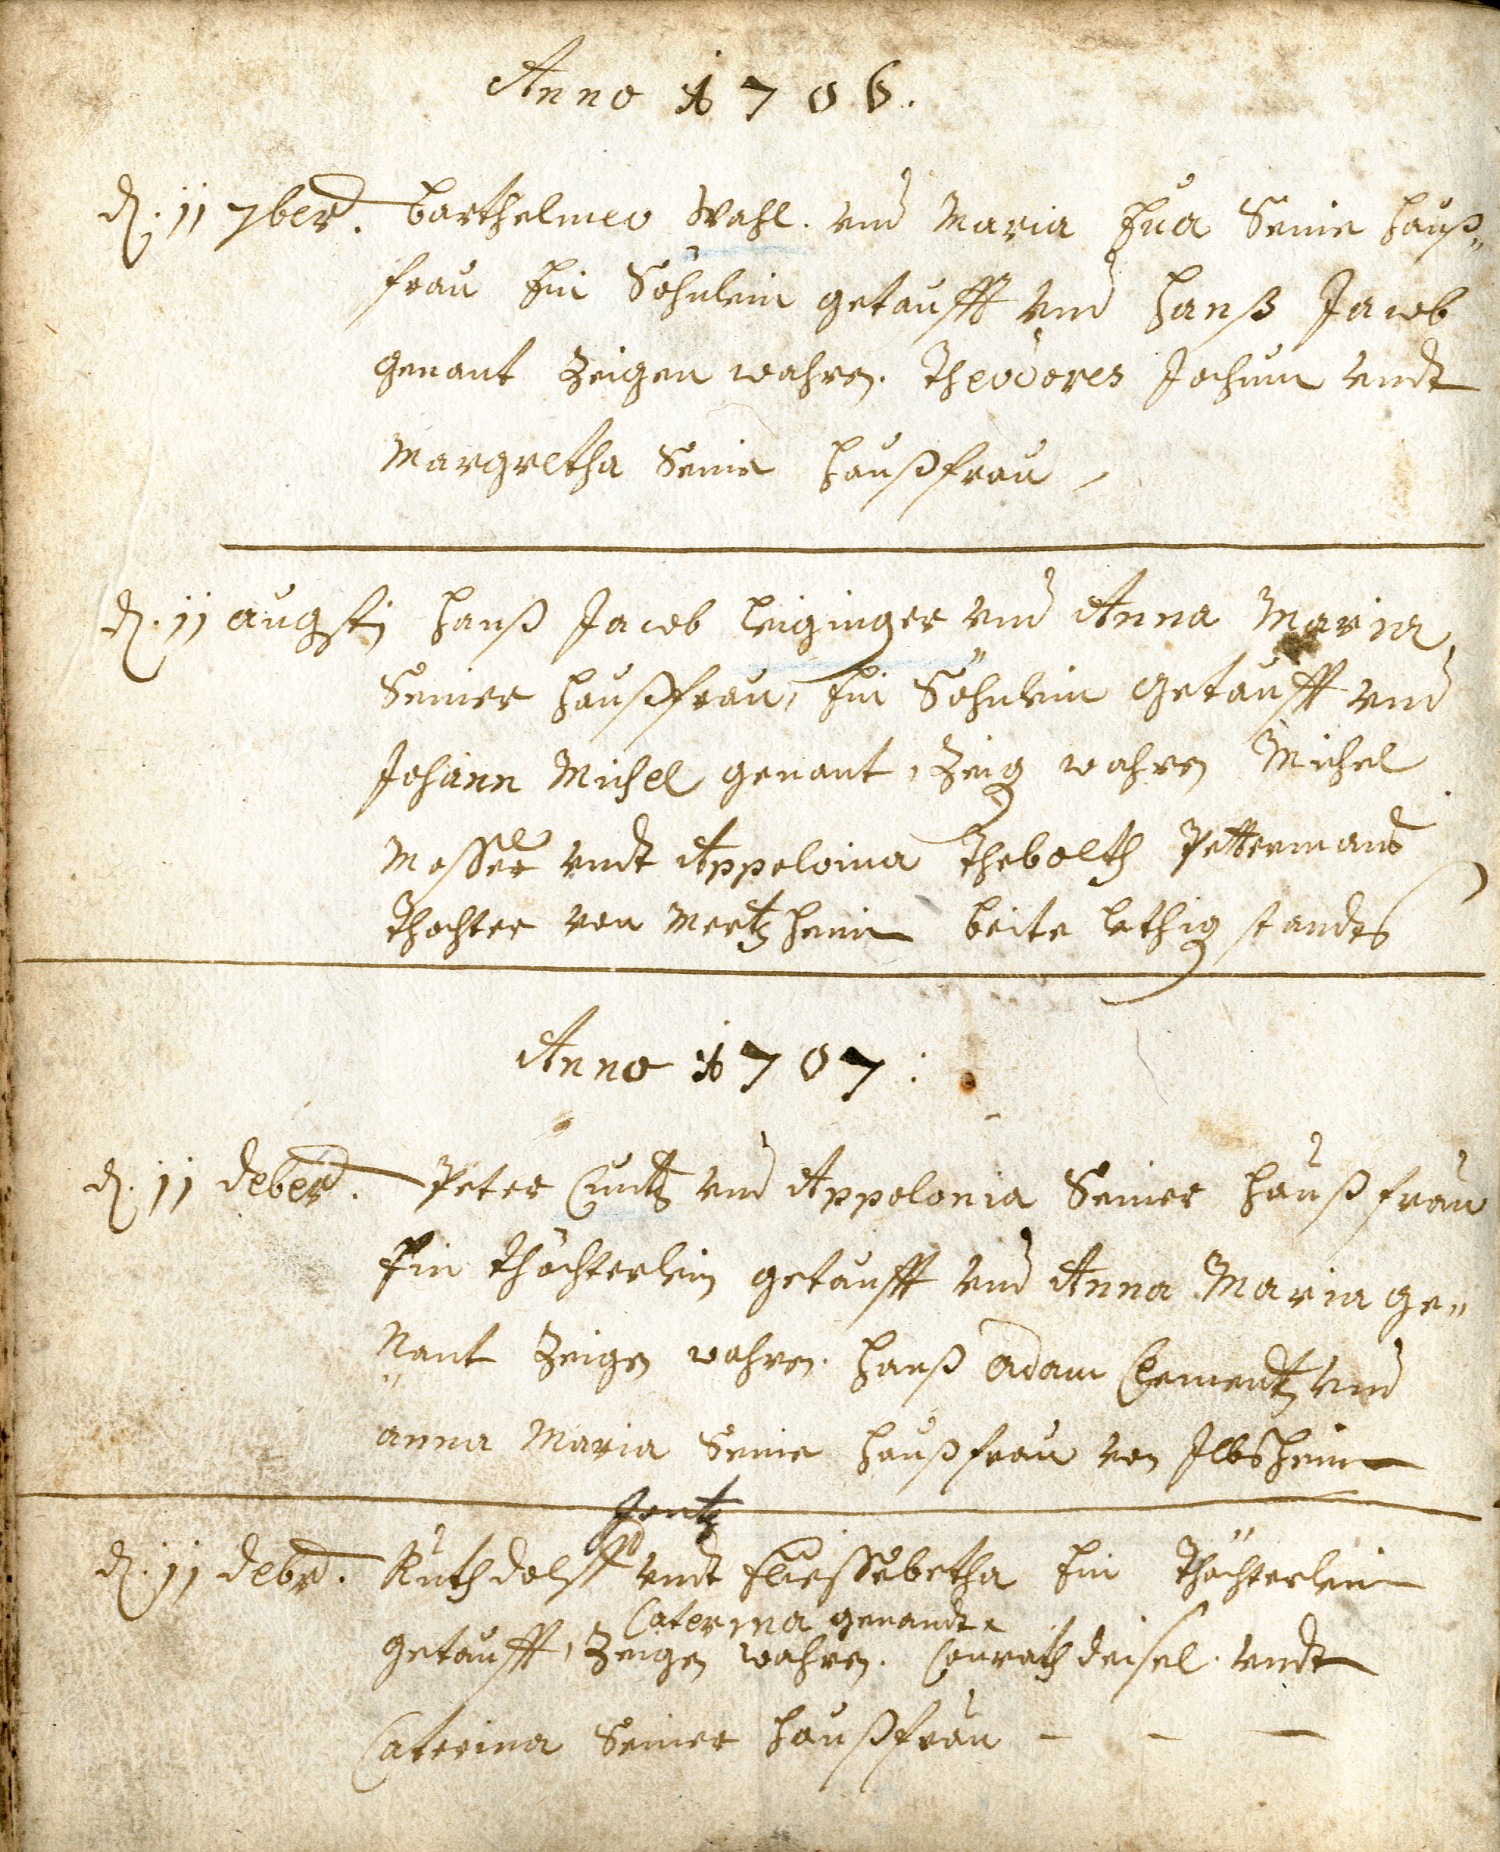 Anno 1706.
d. 11 7ber. Barthelmeo Wahl. und Maria Eua Seine hauß„
frau Ein Söhnlein getaufft und Hanß Jacob
genant Zeigen wahren. Theodores Jochum undt
Margretha Seine haußfrau
d. 11 augsti Hanß Jacob Leiginger und Anna Maria
Seiner haußfrau, Ein Söhnlein getaufft und
Johann Michel genant, Zeig wahren Michel
Messer undt Appelonia Thebolth Pettermans
Thochter von Mertzheim beite lethig standes
Anno 1707:
d. 11 deber. Peter Cuntz und Appolonia Seiner haußfrau
Ein thöchterlein getaufft und Anna Maria ge„
nant Zeigen wahren. Hanß adam Clementz und
anna Maria Seine haußfrau von Ilbsheim
Jentz
d. 11 debr. Ruthdolff undt Eliessebetha Ein thöchterlein
Caterina genandt
getaufft, Zeigen wahren. Conrath deisel. undt
Caterina Seiner haußfrau - - -